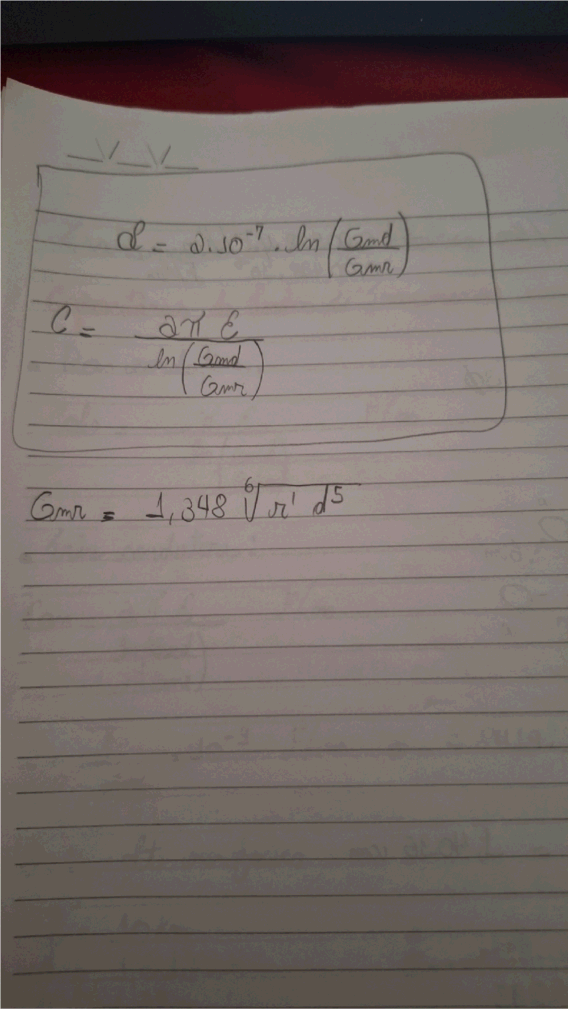 L = 2.10⁻⁷ . ln (Gmd / Gmr)
C = 2π ε / ln (Gmd / Gmr)
Gmr = 1,348 ⁶√(r' d⁵)